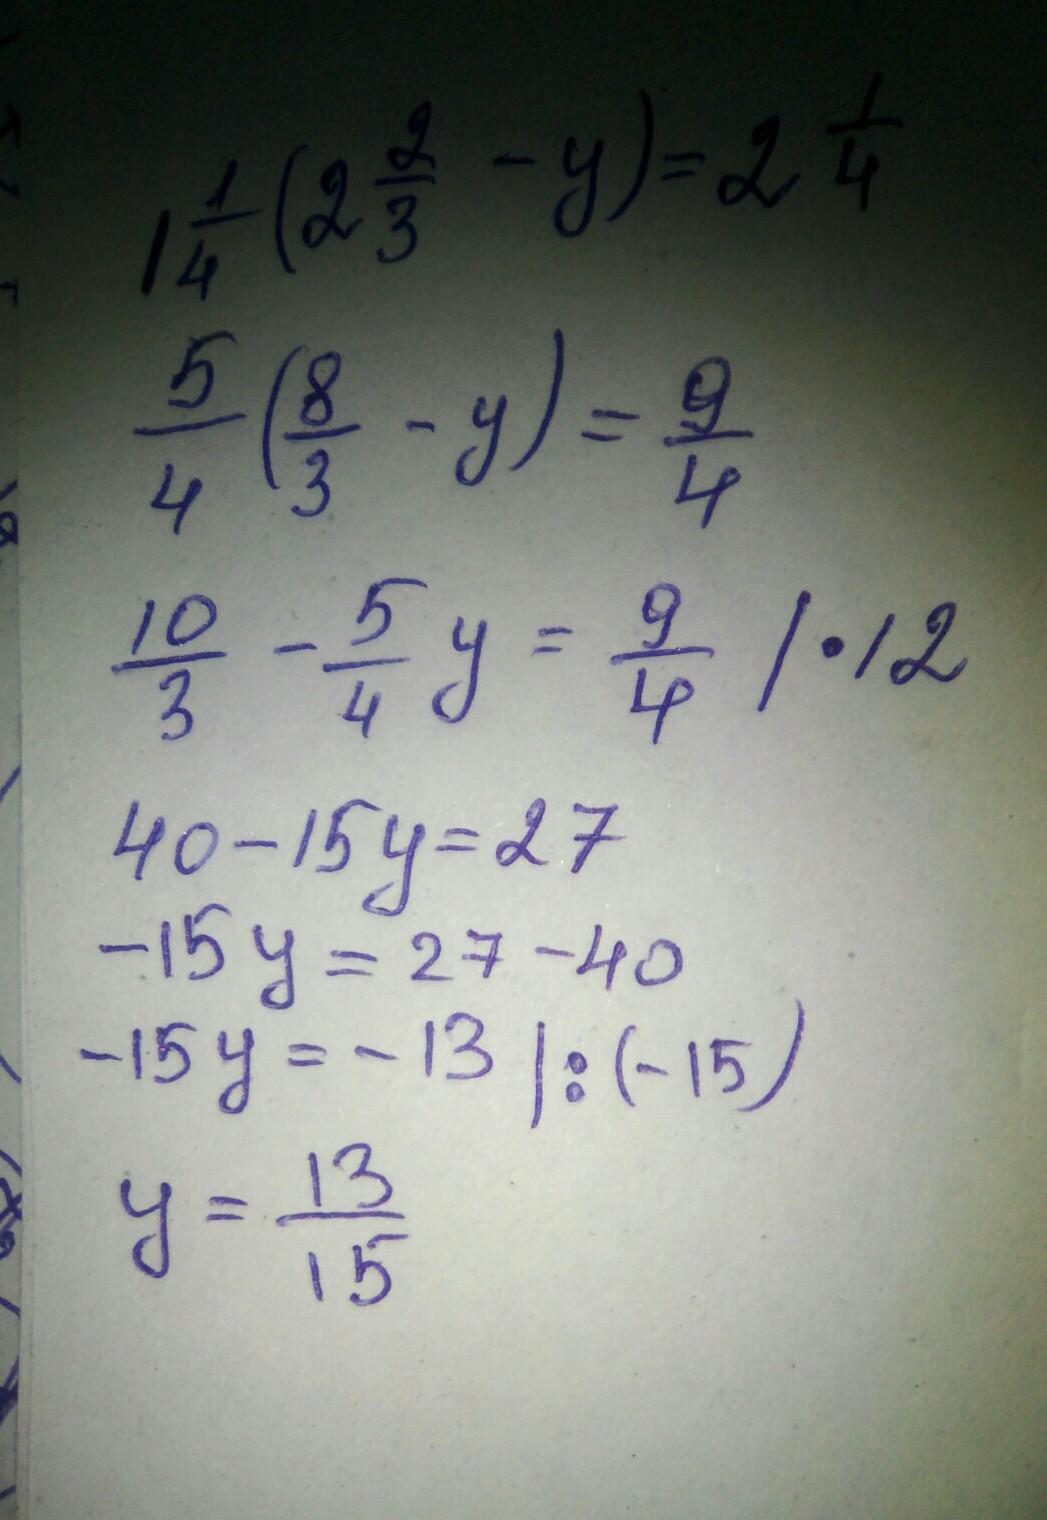 1 1/4 (2 2/3 - y) = 2 1/4
5/4 (8/3 - y) = 9/4
10/3 - 5/4 y = 9/4 | • 12
40 - 15y = 27
-15y = 27 - 40
-15y = -13 | : (-15)
y = 13/15